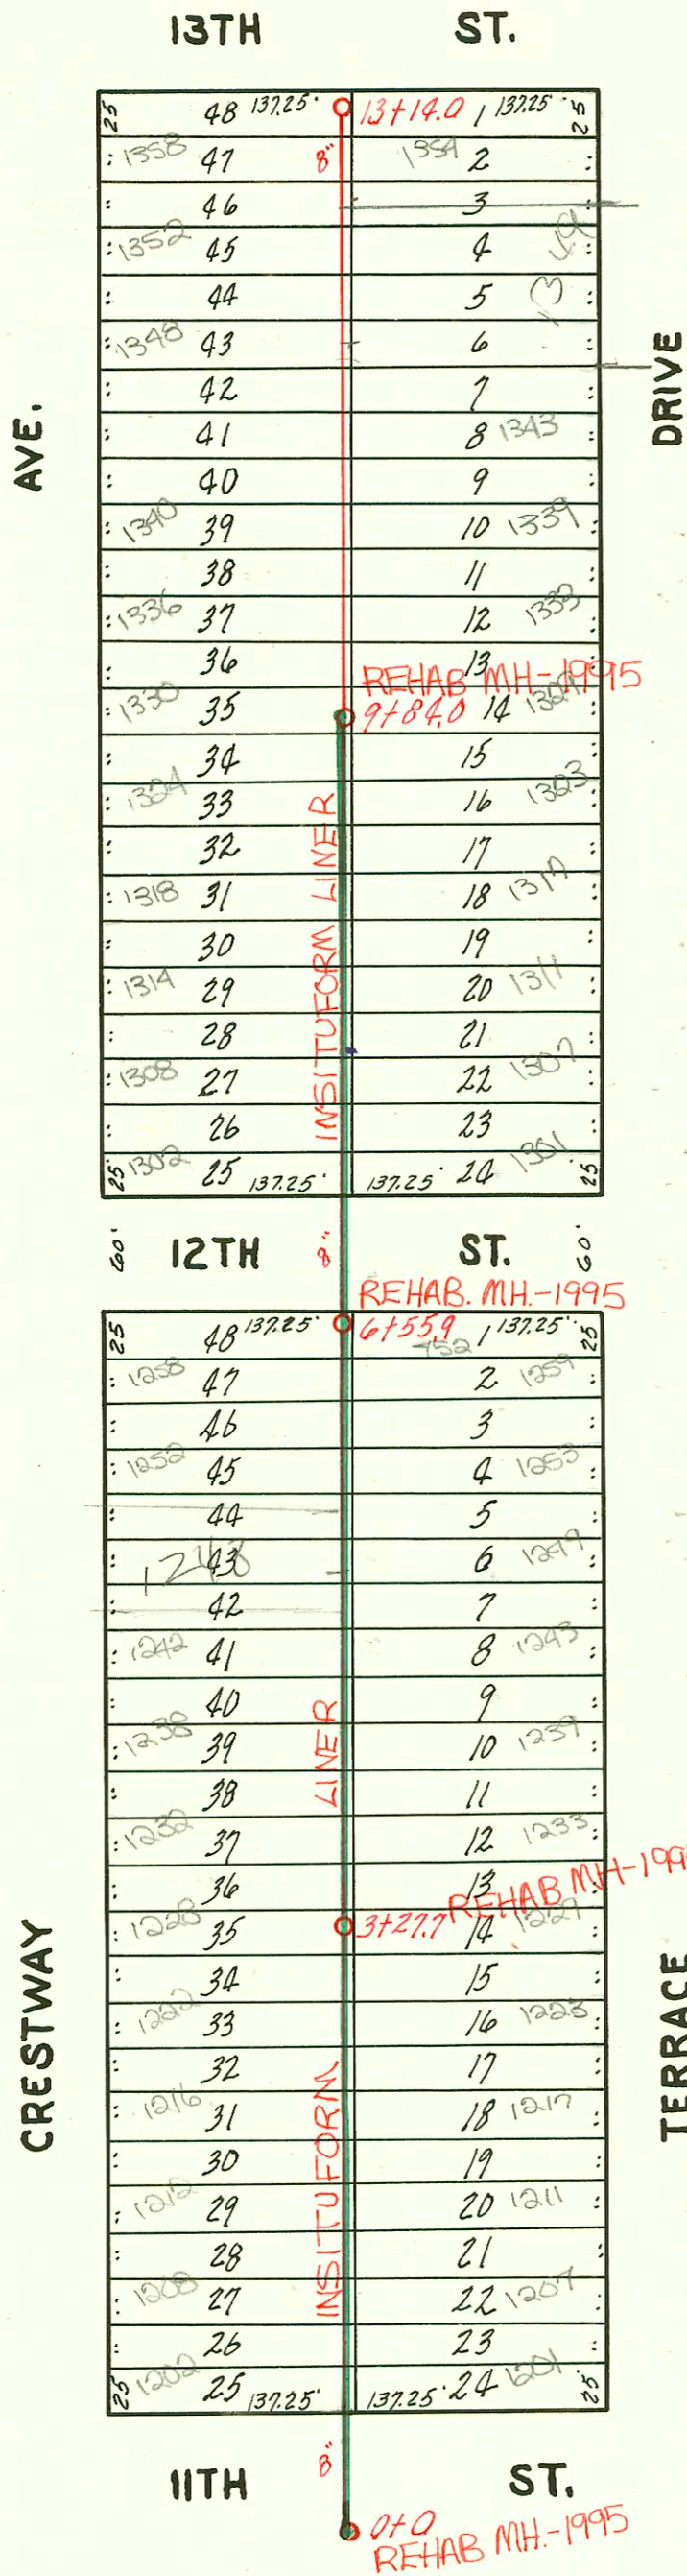 13TH ST.
25 48 137.25' 13+14.0 1 137.25' 25
1358 47 8" 1354 2
46 3
1352 45 4
44 5 1349
1348 43 6
42 7
AVE. DRIVE
41 8 1343
40 9
1340 39 10 1339
38 11
1336 37 12 1333
36 13
REHAB MH-1995
1330 35 9+84.0 14 1329
34 15
1324 33 16 1323
32 17
1318 31 18 1317
30 19
1314 29 20 1311
28 21
1308 27 22 1307
26 23
1302 24 1301
25 25 137.25' 137.25' 25
INSITUFORM LINER
60' 12TH 8" ST. 60'
REHAB. MH.-1995
25 48 137.25' 6+55.9 1 137.25' 25
752
1258 47 2 1259
46 3
1252 45 4 1253
44 5
1248 43 6 1249
42 7
1242 41 8 1243
40 9
1238 39 10 1239
38 11
1232 37 12 1233
36 13
REHAB MH-199
1228 35 3+27.7 14 1227
34 15
1222 33 16 1223
32 17
1216 31 18 1217
30 19
1212 29 20 1211
28 21
1208 27 22 1207
26 23
1202 24 1201
25 25 137.25' 137.25' 25
INSITUFORM LINER
CRESTWAY TERRACE
11TH 8" ST.
0+0
REHAB MH.-1995